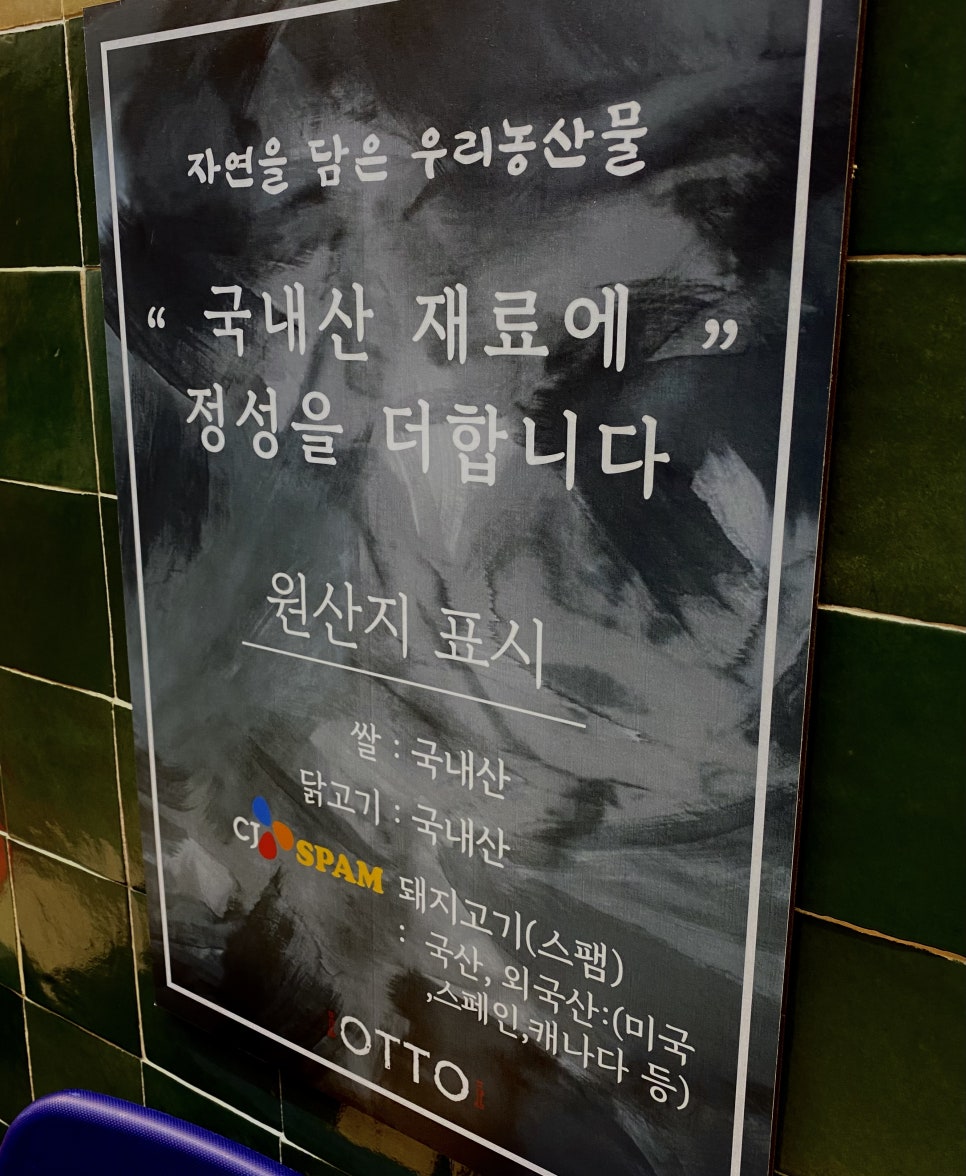 자연을 담은 우리농산물
“ 국내산 재료에 ”
정성을 더합니다
원산지 표시
쌀 : 국내산
닭고기 : 국내산
CJ SPAM 돼지고기(스팸)
: 국산, 외국산:(미국
,스페인,캐나다 등)
OTTO